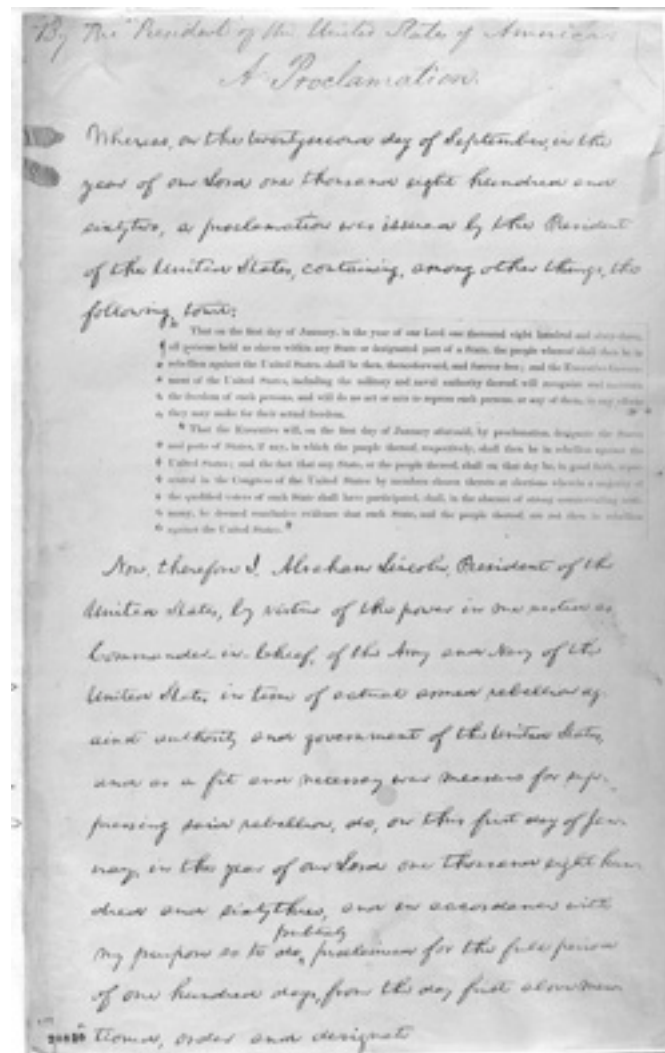 By The President of the United States of America.
A Proclamation.
Whereas, on the twentysecond day of September, in the
year of our Lord one thousand eight hundred and
sixtytwo, a proclamation was issued by the President
of the United States, containing, among other things, the
following, towit:
That on the first day of January, in the year of our Lord one thousand eight hundred and sixty-three,
all persons held as slaves within any State or designated part of a State, the people whereof shall then be in
rebellion against the United States, shall be then, thenceforward, and forever free; and the Executive Govern-
ment of the United States, including the military and naval authority thereof, will recognize and maintain
the freedom of such persons, and will do no act or acts to repress such persons, or any of them, in any efforts
they may make for their actual freedom.
"That the Executive will, on the first day of January aforesaid, by proclamation, designate the States
and parts of States, if any, in which the people thereof, respectively, shall then be in rebellion against the
United States; and the fact that any State, or the people thereof, shall on that day be, in good faith, repre-
sented in the Congress of the United States by members chosen thereto at elections wherein a majority of
the qualified voters of such State shall have participated, shall, in the absence of strong countervailing testi-
mony, be deemed conclusive evidence that such State, and the people thereof, are not then in rebellion
against the United States."
Now, therefore I, Abraham Lincoln, President of the
United States, by virtue of the power in me vested as
Commander-in-Chief, of the Army and Navy of the
United States in time of actual armed rebellion ag-
ainst authority and government of the United States,
and as a fit and necessary war measure for sup-
pressing said rebellion, do, on this first day of Jan-
uary, in the year of our Lord one thousand eight hun-
dred and sixtythree, and in accordance with
publicly
my purpose so to do, proclaimed for the full period
of one hundred days, from the day first above men-
tioned, order and designate